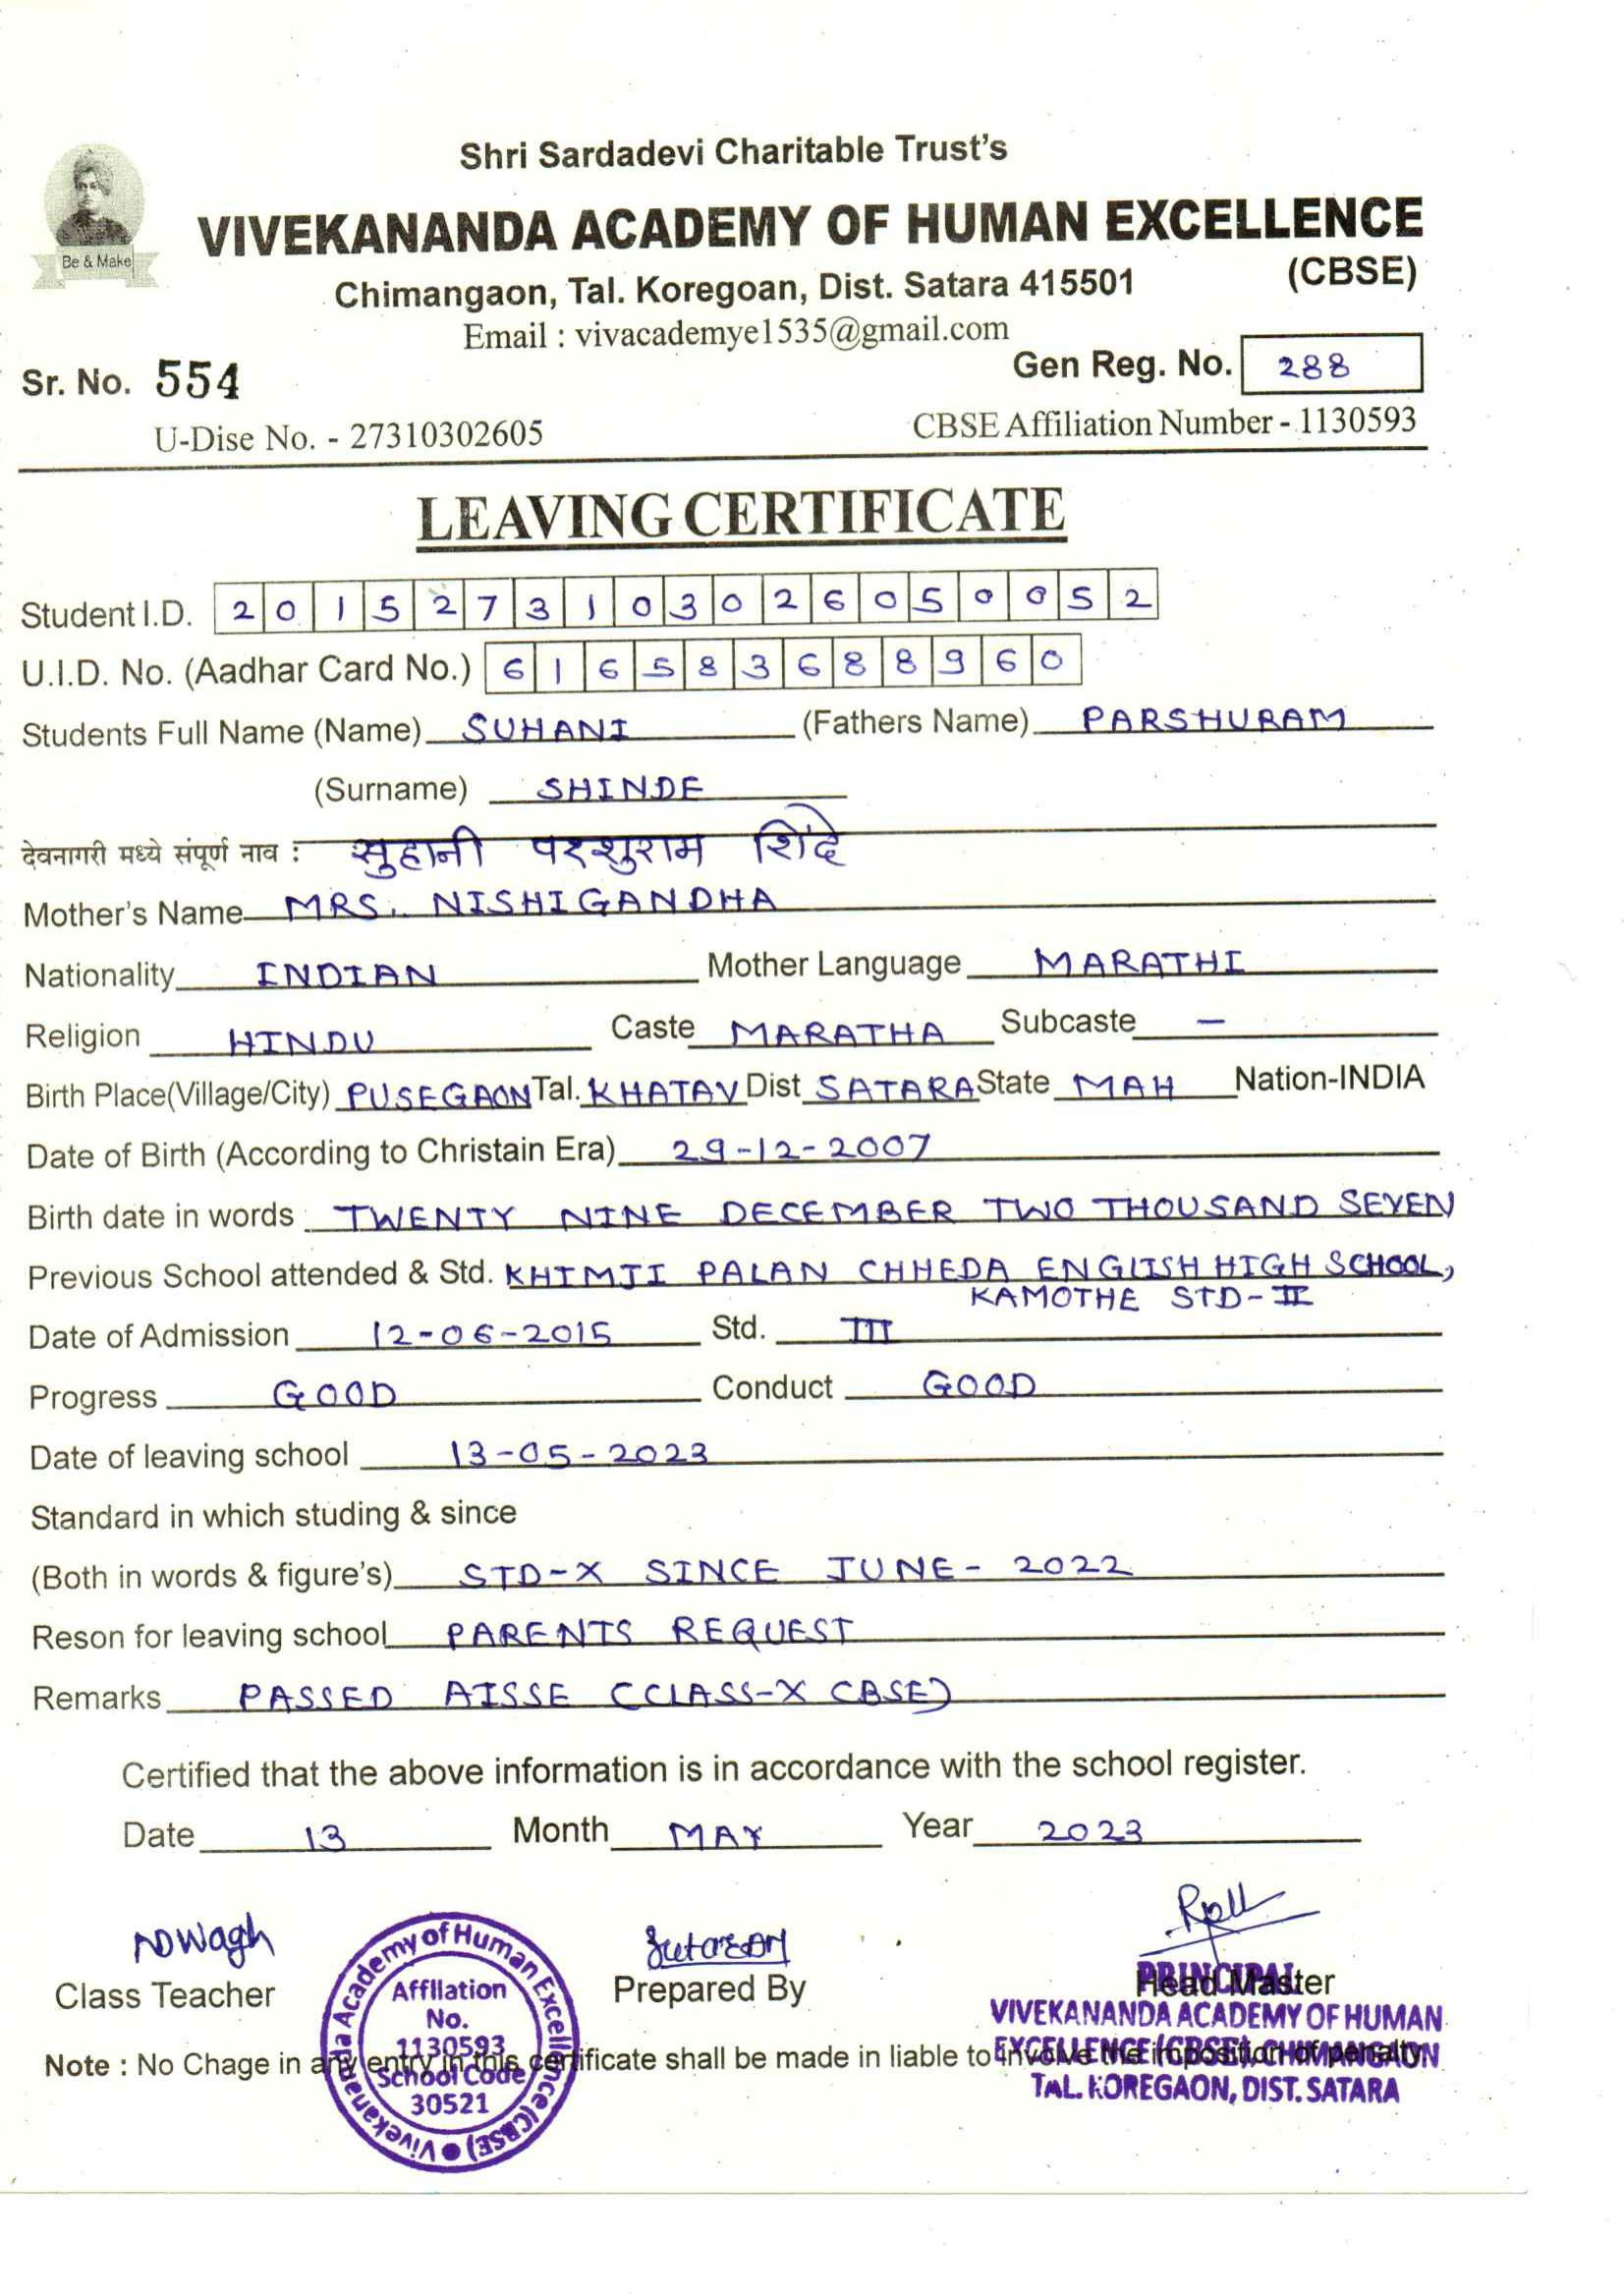 Shri Sardadevi Charitable Trust's
VIVEKANANDA ACADEMY OF HUMAN EXCELLENCE
(CBSE)
Be & Make
Chimangaon, Tal. Koregoan, Dist. Satara 415501
Email : vivacademye1535@gmail.com
Sr. No. 554 Gen Reg. No. 288
U-Dise No. - 27310302605 CBSE Affiliation Number - 1130593
LEAVING CERTIFICATE
Student I.D. 2015273103026050052
U.I.D. No. (Aadhar Card No.) 616583688960
Students Full Name (Name) SUHANI (Fathers Name) PARSHURAM
(Surname) SHINDE
देवनागरी मध्ये संपूर्ण नाव : सुहानी परशुराम शिंदे
Mother's Name MRS. NISHIGANDHA
Nationality INDIAN Mother Language MARATHI
Religion HINDU Caste MARATHA Subcaste —
Birth Place(Village/City) PUSEGAON Tal. KHATAV Dist SATARA State MAH Nation-INDIA
Date of Birth (According to Christain Era) 29-12-2007
Birth date in words TWENTY NINE DECEMBER TWO THOUSAND SEVEN
Previous School attended & Std. KHIMJI PALAN CHHEDA ENGLISH HIGH SCHOOL,
KAMOTHE STD-II
Date of Admission 12-06-2015 Std. III
Progress GOOD Conduct GOOD
Date of leaving school 13-05-2023
Standard in which studing & since
(Both in words & figure's) STD-X SINCE JUNE- 2022
Reson for leaving school PARENTS REQUEST
Remarks PASSED AISSE (CLASS-X CBSE)
Certified that the above information is in accordance with the school register.
Date 13 Month MAY Year 2023
Class Teacher Prepared By Head Master
PRINCIPAL
VIVEKANANDA ACADEMY OF HUMAN
EXCELLENCE (CBSE), CHIMANGAON
TAL. KOREGAON, DIST. SATARA
Note : No Chage in any entry in this certificate shall be made in liable to involve the imposition of penalty.
Vivekananda Academy of Human Excellence (CBSE)
Affiliation
No.
1130593
School Code
30521